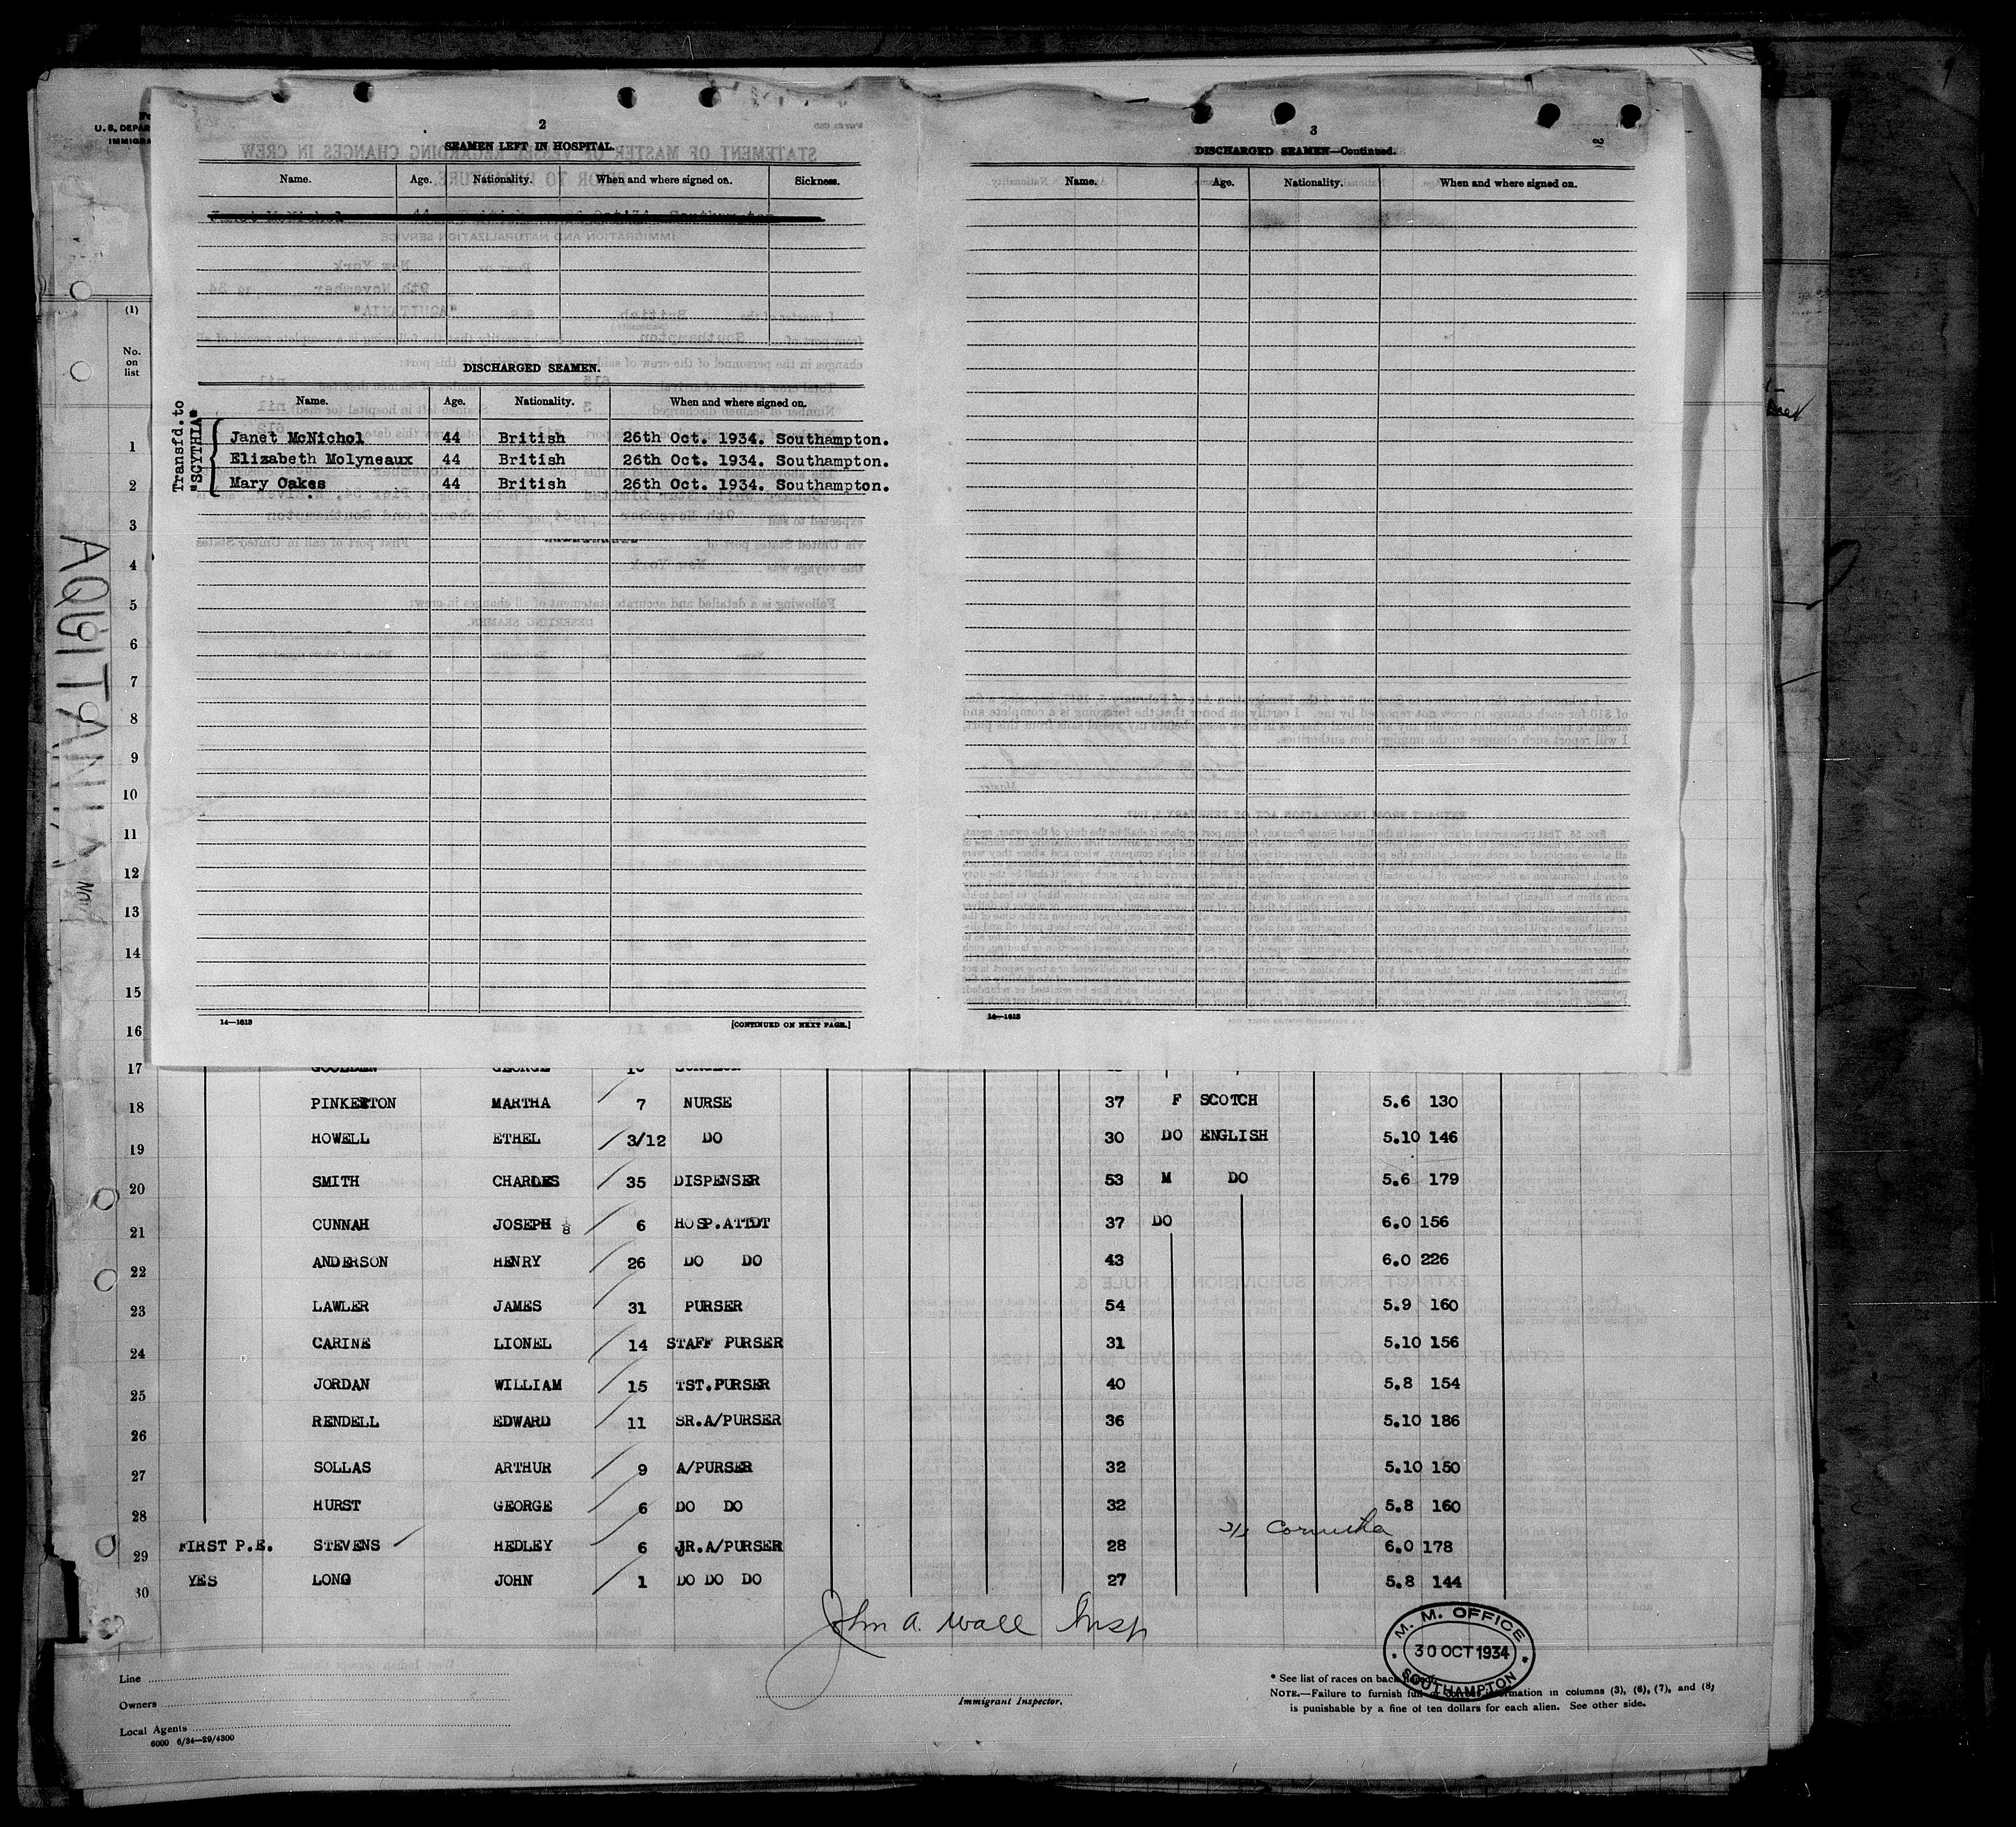 2
SEAMEN LEFT IN HOSPITAL.
Name. Age. Nationality. When and where signed on. Sickness.
Janet McNichol 44 British 26 Oct'34 Southampton
DISCHARGED SEAMEN.
Name. Age. Nationality. When and where signed on.
Transfd. to "SCYTHIA"
Janet McNichol 44 British 26th Oct. 1934. Southampton.
Elizabeth Molyneaux 44 British 26th Oct. 1934. Southampton.
Mary Oakes 44 British 26th Oct. 1934. Southampton.
14—1613 [CONTINUED ON NEXT PAGE.]
3
DISCHARGED SEAMEN—Continued.
Name. Age. Nationality. When and where signed on.
14—1613
U. S. DEPAR
IMMIGRA
(1)
No. on list
AQUITANIA
Nov
1
2
3
4
5
6
7
8
9
10
11
12
13
14
15
16
17 GOOLDEN GEORGE SURGEON
18 PINKERTON MARTHA 7 NURSE 37 F SCOTCH 5.6 130
19 HOWELL ETHEL 3/12 DO 30 DO ENGLISH 5.10 146
20 SMITH CHARLES 35 DISPENSER 53 M DO 5.6 179
21 CUNNAH JOSEPH 6 HOSP.ATTDT 37 DO 6.0 156
22 ANDERSON HENRY 26 DO DO 43 6.0 226
23 LAWLER JAMES 31 PURSER 54 5.9 160
24 CARINE LIONEL 14 STAFF PURSER 31 5.10 156
25 JORDAN WILLIAM 15 TST.PURSER 40 5.8 154
26 RENDELL EDWARD 11 SR.A/PURSER 36 5.10 186
27 SOLLAS ARTHUR 9 A/PURSER 32 5.10 150
28 HURST GEORGE 6 DO DO 32 5.8 160
29 FIRST P.E. STEVENS HEDLEY 6 JR.A/PURSER 28 6.0 178
30 YES LONG JOHN 1 DO DO DO 27 5.8 144
John A. Wall Insp
Immigrant Inspector.
M. M. OFFICE
30 OCT 1934
SOUTHAMPTON
Line
Owners
Local Agents
6000 6/34—29/4300
* See list of races on back
NOTE.—Failure to furnish full information in columns (3), (6), (7), and (8)
is punishable by a fine of ten dollars for each alien. See other side.